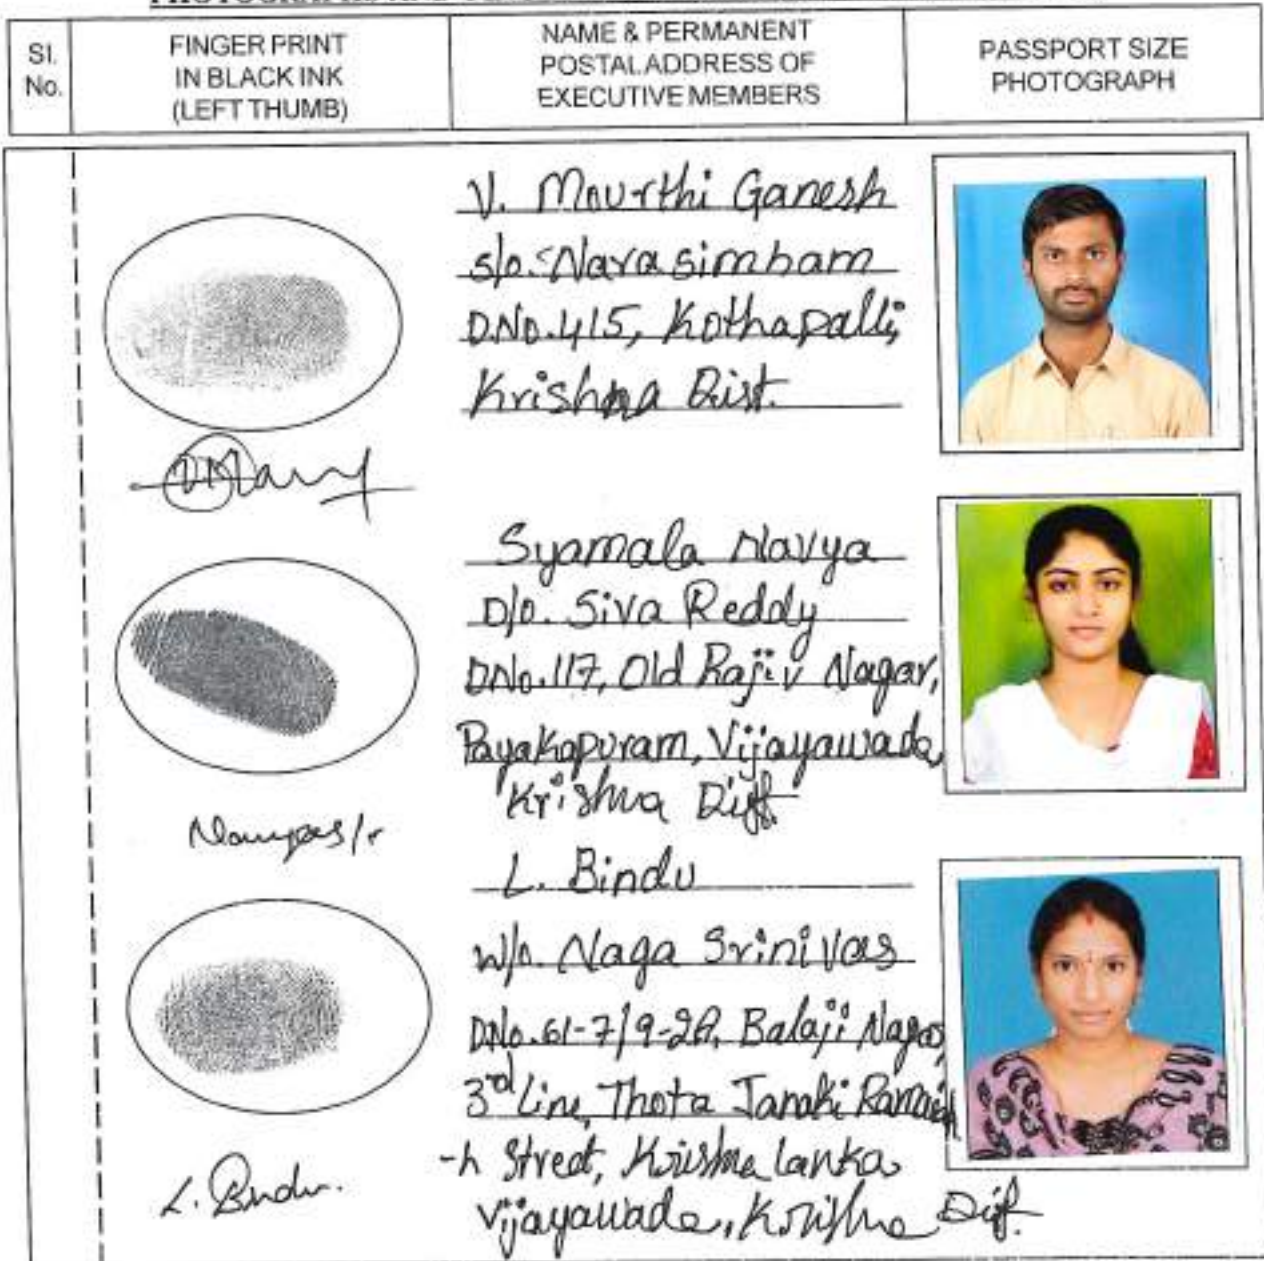 Sl.
No.
FINGER PRINT
IN BLACK INK
(LEFT THUMB)
NAME & PERMANENT
POSTAL ADDRESS OF
EXECUTIVE MEMBERS
PASSPORT SIZE
PHOTOGRAPH
V. Mourthi Ganesh
s/o. Narasimham
D.No.415, Kothapalli,
Krishna Dist.
Syamala Navya
D/o. Siva Reddy
DNo.117, Old Rajiv Nagar,
Payakapuram, Vijayawada,
Krishna Dist.
L. Bindu
W/o. Naga Srinivas
DNo.61-7/9-2A, Balaji Nagar,
3rd Line, Thota Janaki Ramaia
-h Street, Krishna lanka
Vijayawada, Krishna Dist.
L. Bindu.